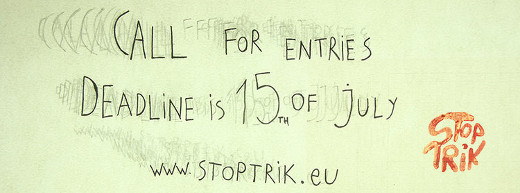 CALL FOR ENTRIES
DEADLINE is 15TH OF JULY
www.STOPTRIK.eu
STOP
TRIK